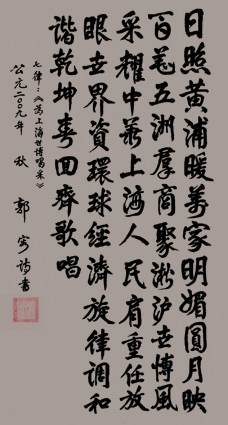 日照黄浦暖万家明媚圓月映
百花五洲群商聚淞沪世博風
采耀中華上海人民肩重任放
眼世界資環球经濟旋律調和
諧乾坤春回齊歌唱
七律：《為上海世博喝采》
公元二〇〇九年 秋 郭 詩書